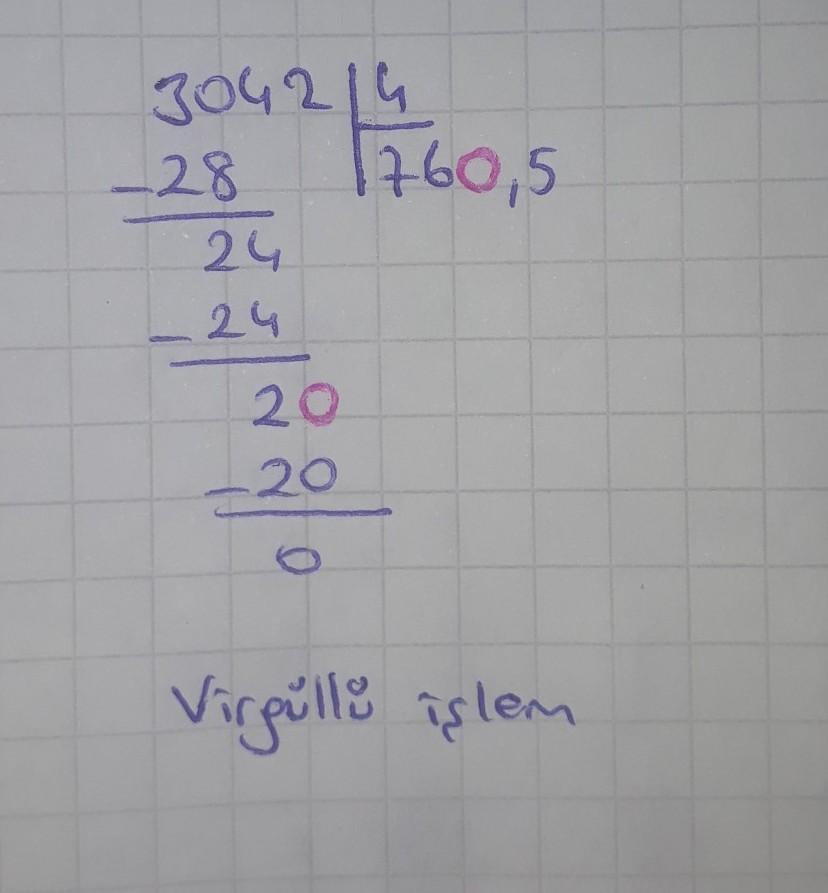 3042 4
-28 760,5
24
-24
20
-20
0
Virgüllü işlem